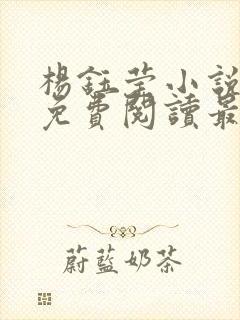 楊鈺莹小說
免費閱讀最
蔚藍奶茶